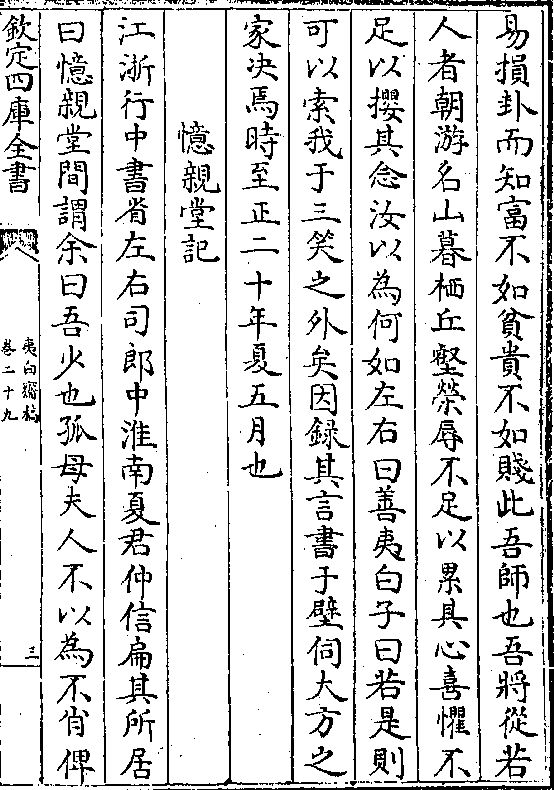 易損卦而知富不如貧貴不如賤此吾師也吾將從若
人者朝游名山暮栖丘壑榮辱不足以累其心喜懼不
足以攖其念汝以為何如左右曰善夷白子曰若是則
可以索我于三笑之外矣因録其言書于壁伺大方之
家决焉時至正二十年夏五月也
憶親堂記
江浙行中書省左右司郎中淮南夏君仲信扁其所居
曰憶親堂間謂余曰吾少也孤母夫人不以為不肖俾
欽定四庫全書
夷白齋稿
卷二十九
三